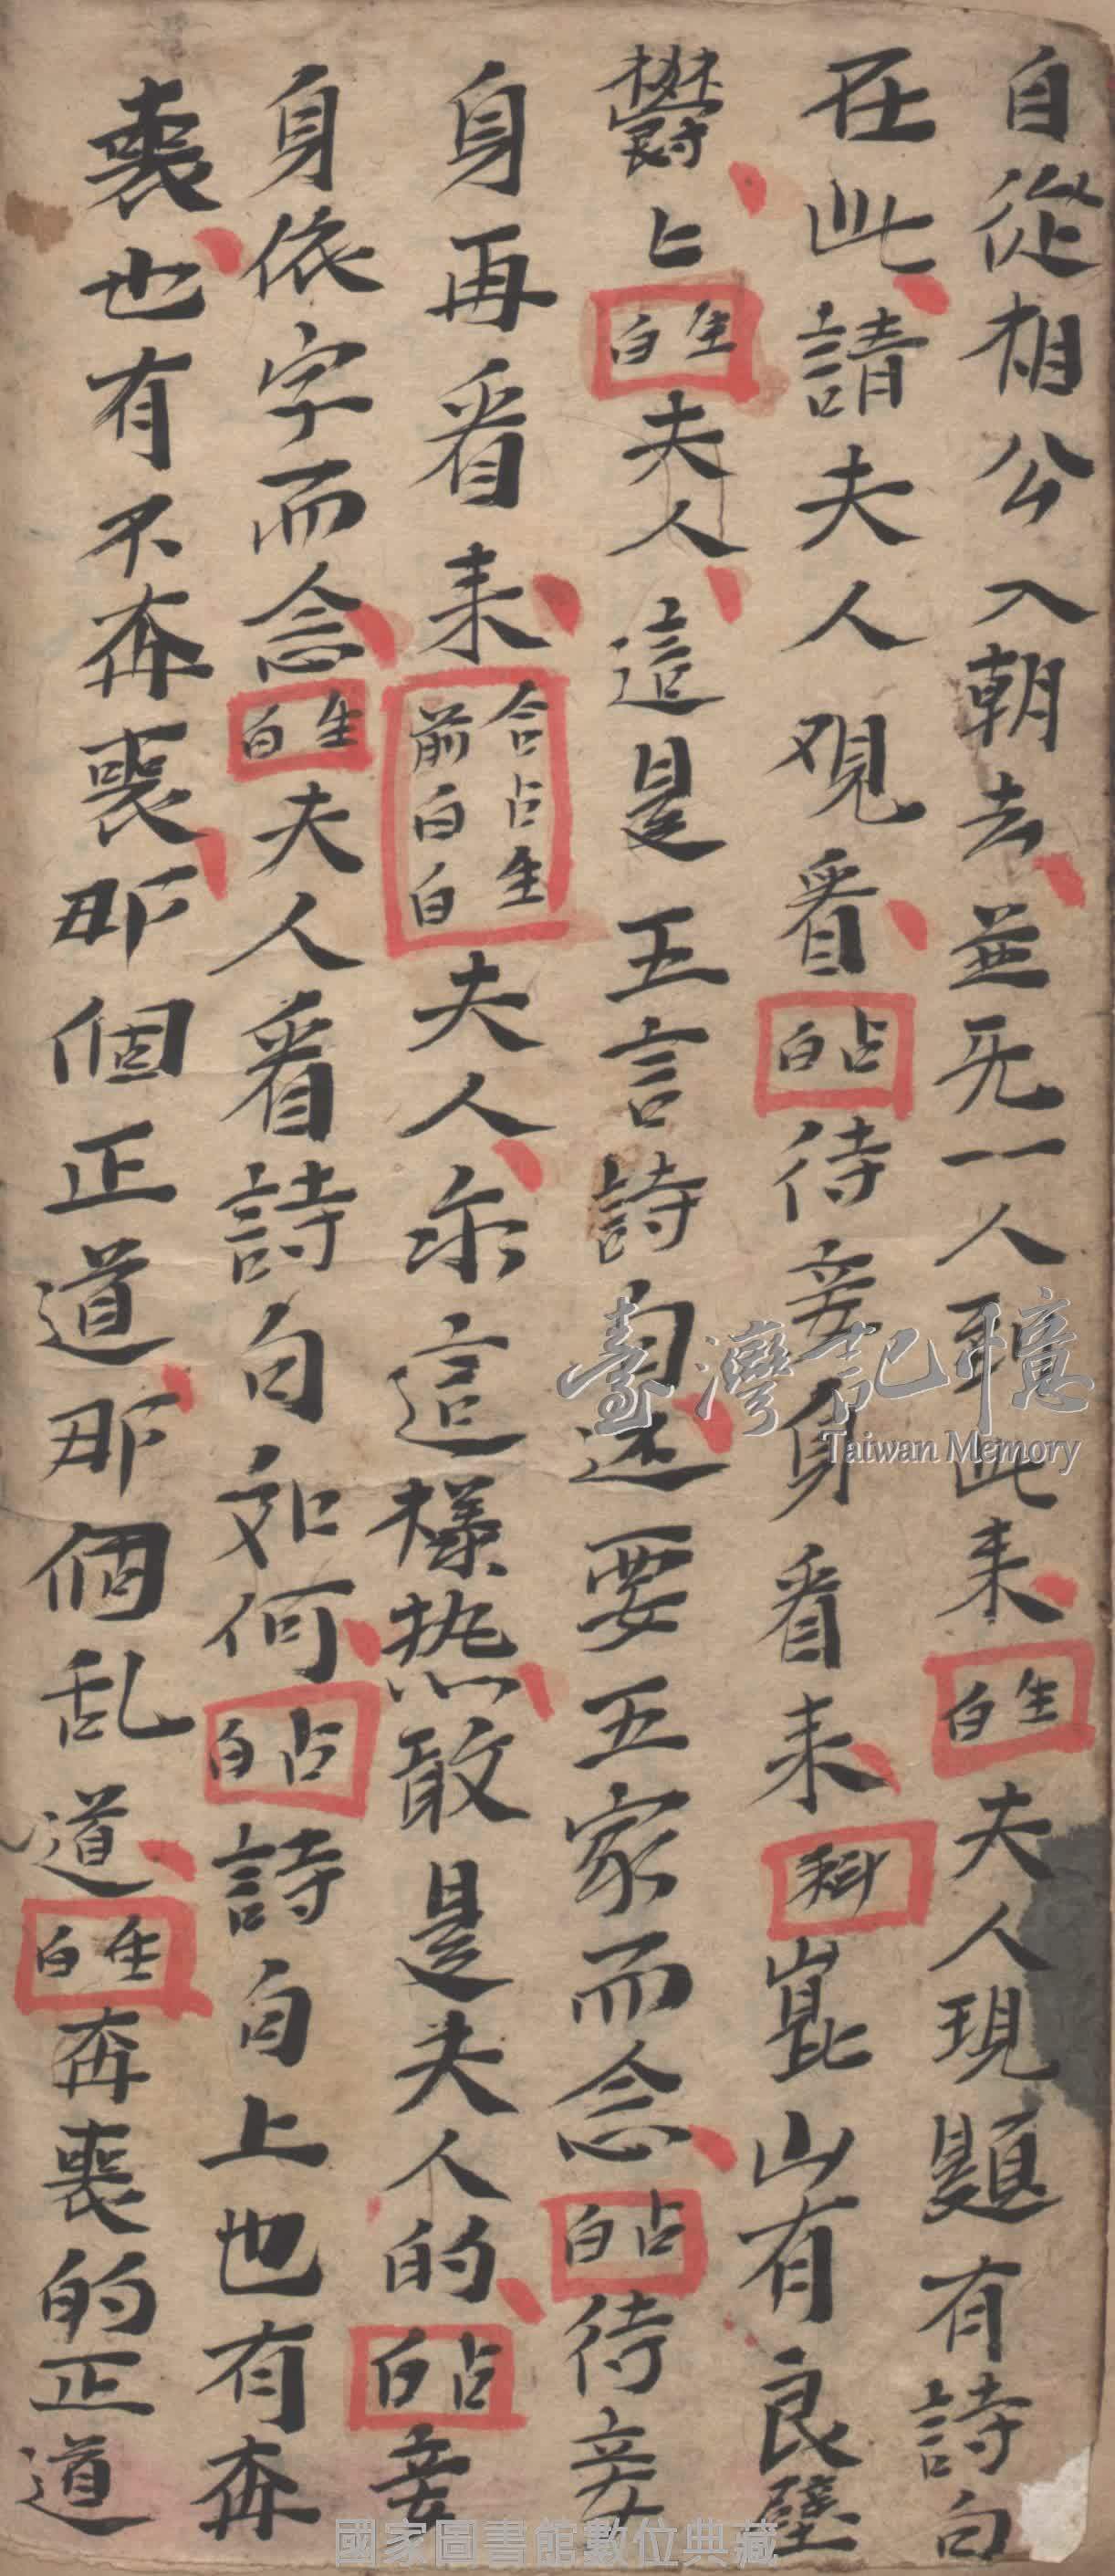 自從相公入朝去並旡一人到此来生白夫人現題有詩白
在此請夫人观看占白待妾身看来科崑山有良璧
欝上生白夫人這是五言詩句还要五家而念占白待妾
身再看来合前占白生白夫人尔這樣热敢是夫人的占白妾
身依字而念生白夫人看詩句如何占白詩句上也有奔
喪也有不奔喪那個正道那個乱道生白奔喪的正道
臺灣記憶
Taiwan Memory
國家圖書館數位典藏